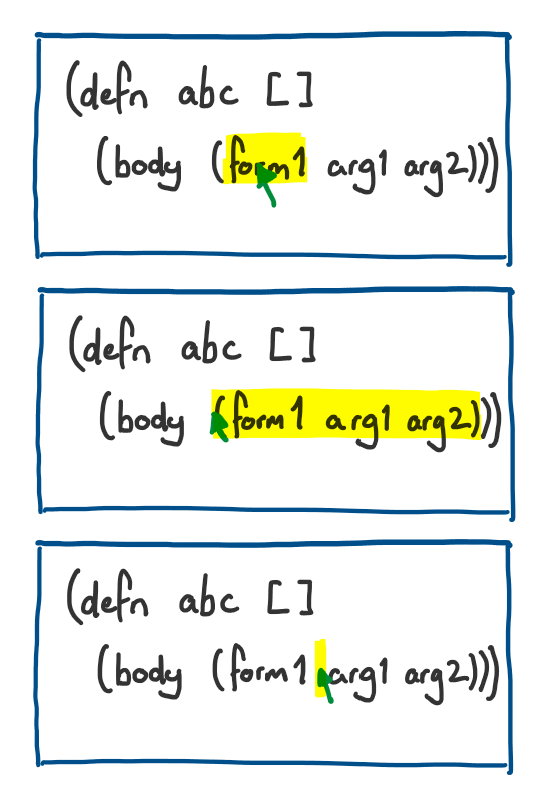 (defn abc []
(body (form1 arg1 arg2)))
(defn abc []
(body (form1 arg1 arg2)))
(defn abc []
(body (form1 arg1 arg2)))